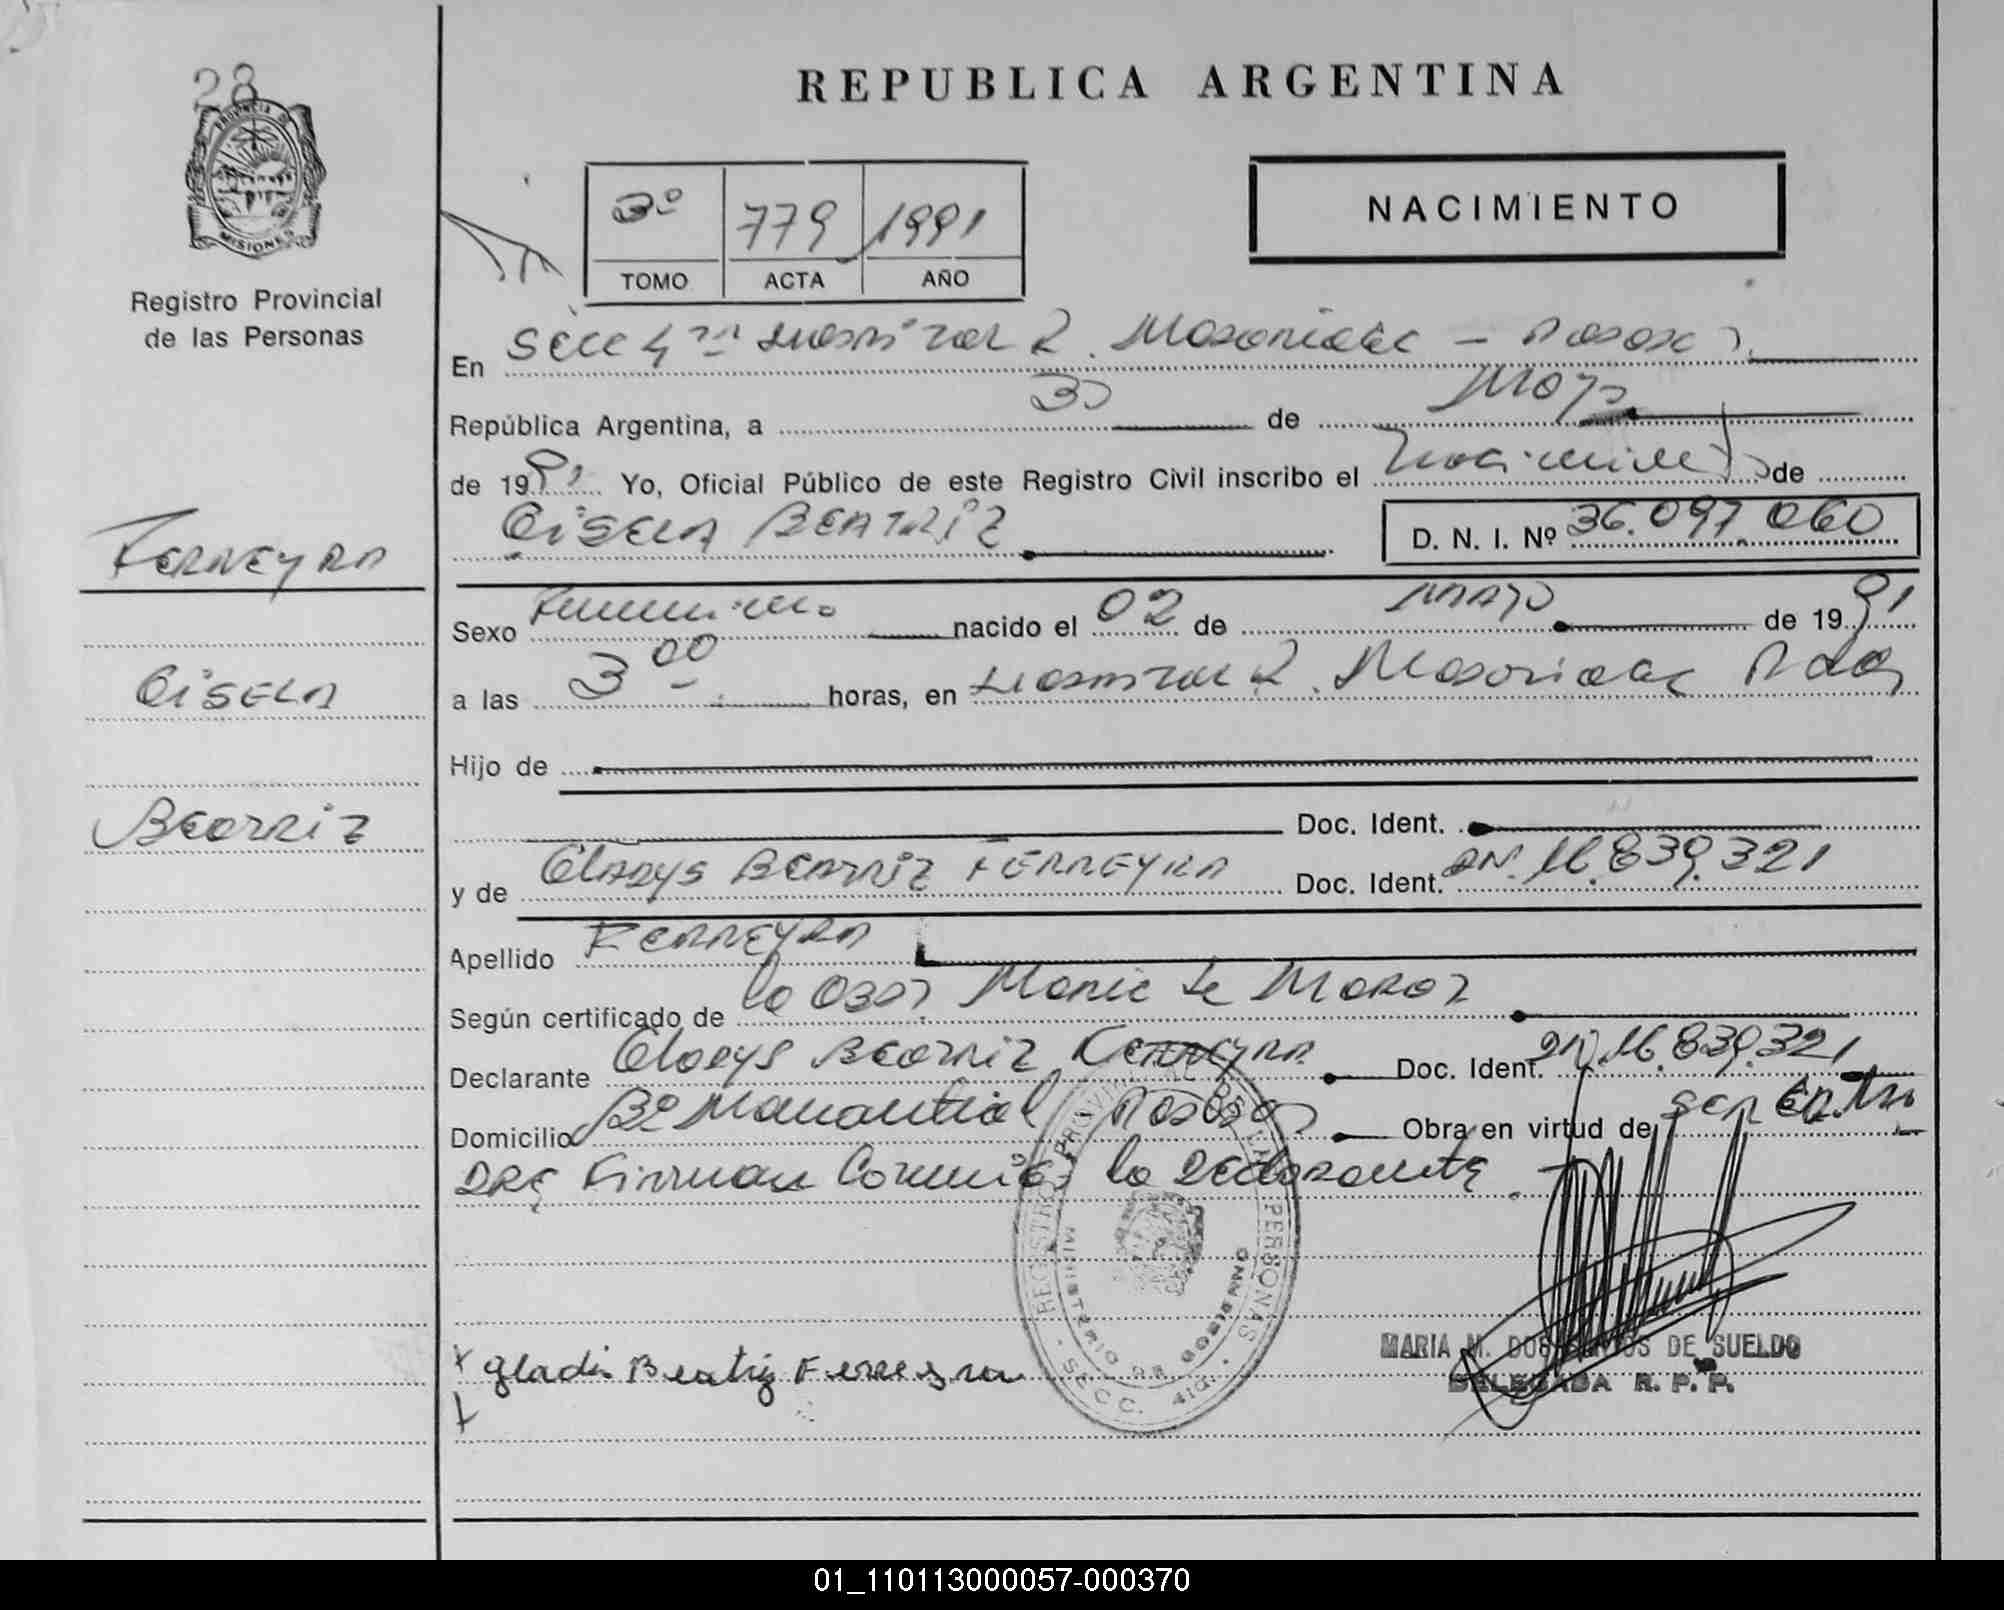 28
PROVINCIA DE
MISIONES
Registro Provincial
de las Personas
REPUBLICA ARGENTINA
3º 779 1991
TOMO ACTA AÑO
NACIMIENTO
En Secc 4ta Hospital R. Madariaga - Posadas
República Argentina, a 30 de Mayo
de 1991 Yo, Oficial Público de este Registro Civil inscribo el nacimiento de
GISELA BEATRIZ D. N. I. Nº 36.097.060
FERREYRA
GISELA
BEATRIZ
Sexo Femenino nacido el 02 de MAYO de 1991
a las 3 00 horas, en Hospital R. Madariaga Pdas
Hijo de
Doc. Ident.
y de GLADYS BEATRIZ FERREYRA Doc. Ident. DN. 16.839.321
Apellido FERREYRA
Según certificado de la Obst
Declarante Gladys Beatriz Ferreyra Doc. Ident. DN. 16.839.321
Domicilio Bº Manantial Posadas Obra en virtud de ser la
DRE Firman Conmigo la Declarante.
REGISTRO PROVINCIAL DE LAS PERSONAS
MINISTERIO DE GOBIERNO
SECC. 4ta.
x Gladis Beatriz Ferreyra
MARIA N. DOS SANTOS DE SUELDO
DELEGADA R. P. P.
01_110113000057-000370